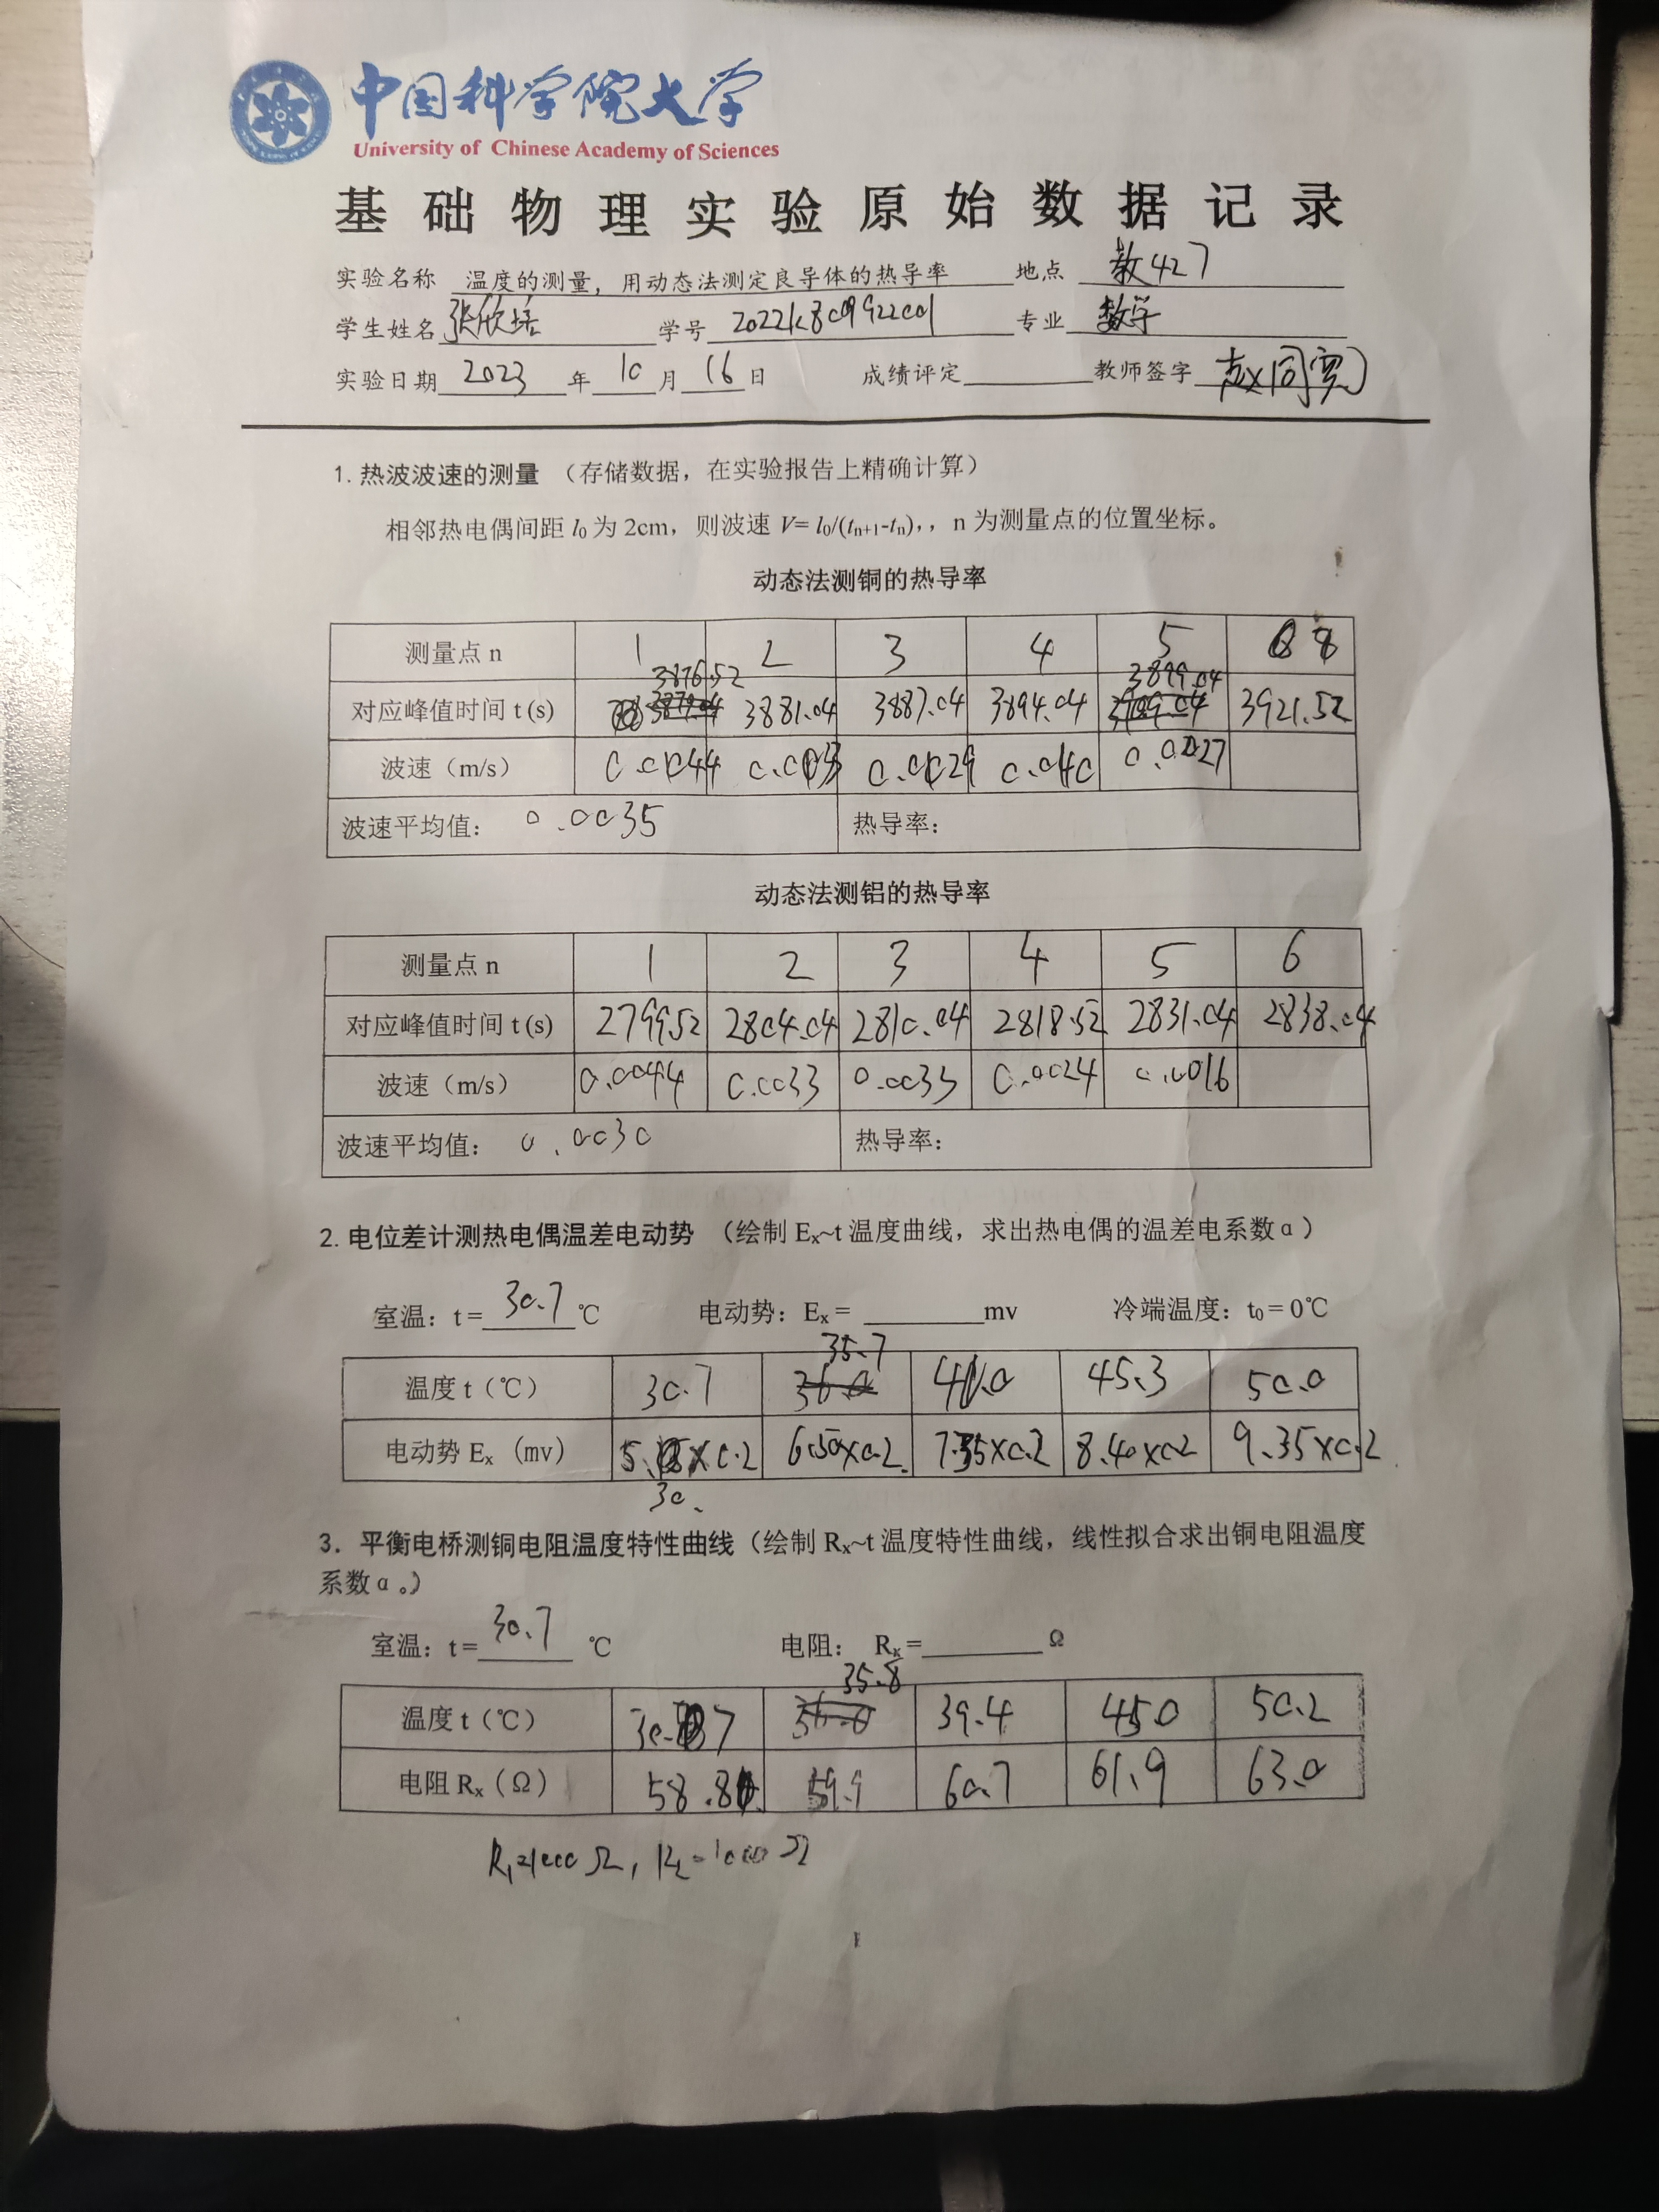 中国科学院大学
University of Chinese Academy of Sciences
基础物理实验原始数据记录
实验名称 温度的测量，用动态法测定良导体的热导率 地点 教427
学生姓名 张欣培 学号 2022k8009922001 专业 数学
实验日期 2023 年 10 月 16 日 成绩评定 教师签字 赵同宽
1. 热波波速的测量 （存储数据，在实验报告上精确计算）
相邻热电偶间距 l0 为 2cm，则波速 V= l0/(tn+1-tn)，, n 为测量点的位置坐标。
动态法测铜的热导率
测量点 n 1 2 3 4 5 8
3876.52 3899.04
对应峰值时间 t (s) 3881.04 3887.04 3894.04 3921.52
波速（m/s） 0.0044 0.0033 0.0029 0.040 0.0027
波速平均值： 0.0035 热导率：
动态法测铝的热导率
测量点 n 1 2 3 4 5 6
对应峰值时间 t (s) 2799.52 2804.04 2810.04 2818.52 2831.04 2838.04
波速（m/s） 0.0044 0.0033 0.0033 0.0024 0.0016
波速平均值： 0.0030 热导率：
2. 电位差计测热电偶温差电动势 （绘制 Ex~t 温度曲线，求出热电偶的温差电系数α）
室温：t= 30.7 ℃ 电动势：Ex = mv 冷端温度：t0 = 0℃
35.7
温度 t（℃） 30.7 36.0 41.0 45.3 50.0
电动势 Ex（mv） 5. ×0.2 6.50×0.2 7.35×0.2 8.40×0.2 9.35×0.2
30.
3. 平衡电桥测铜电阻温度特性曲线（绘制 Rx~t 温度特性曲线，线性拟合求出铜电阻温度
系数α。）
室温：t= 30.7 ℃ 电阻： Rx = Ω
35.8
温度 t（℃） 30.7 36.0 39.4 45.0 50.2
电阻 Rx（Ω） 58.8 59.9 60.7 61.9 63.0
R1=1000 Ω, R2=1000 Ω
1